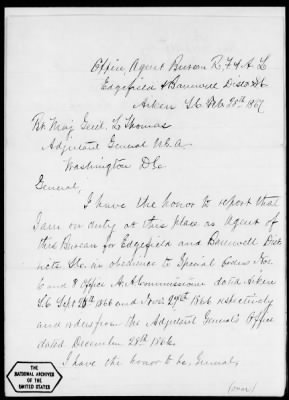 Office, Agent Bureau R. F & A. L
Edgefield & Barnwell Dists S.C.
Aiken S.C. Feb. 28th 1867
Bt Maj. Genl. L Thomas
Adjutant General U.S.A.
Washington D.C.
General,
I have the honor to report that
I am on duty at this place as Agent of
this Bureau for Edgefield and Barnwell Dist
ricts S.C. in obedience to Special Orders Nos.
6 and 8 Office A. Commissioner dated Aiken
S.C. Sept 1866 and Nov. 27th 1866 respectively
and orders from the Adjutant General's Office
dated December 28th 1866.
I have the honor to be, General,
(over)
THE
NATIONAL ARCHIVES
OF THE
UNITED STATES